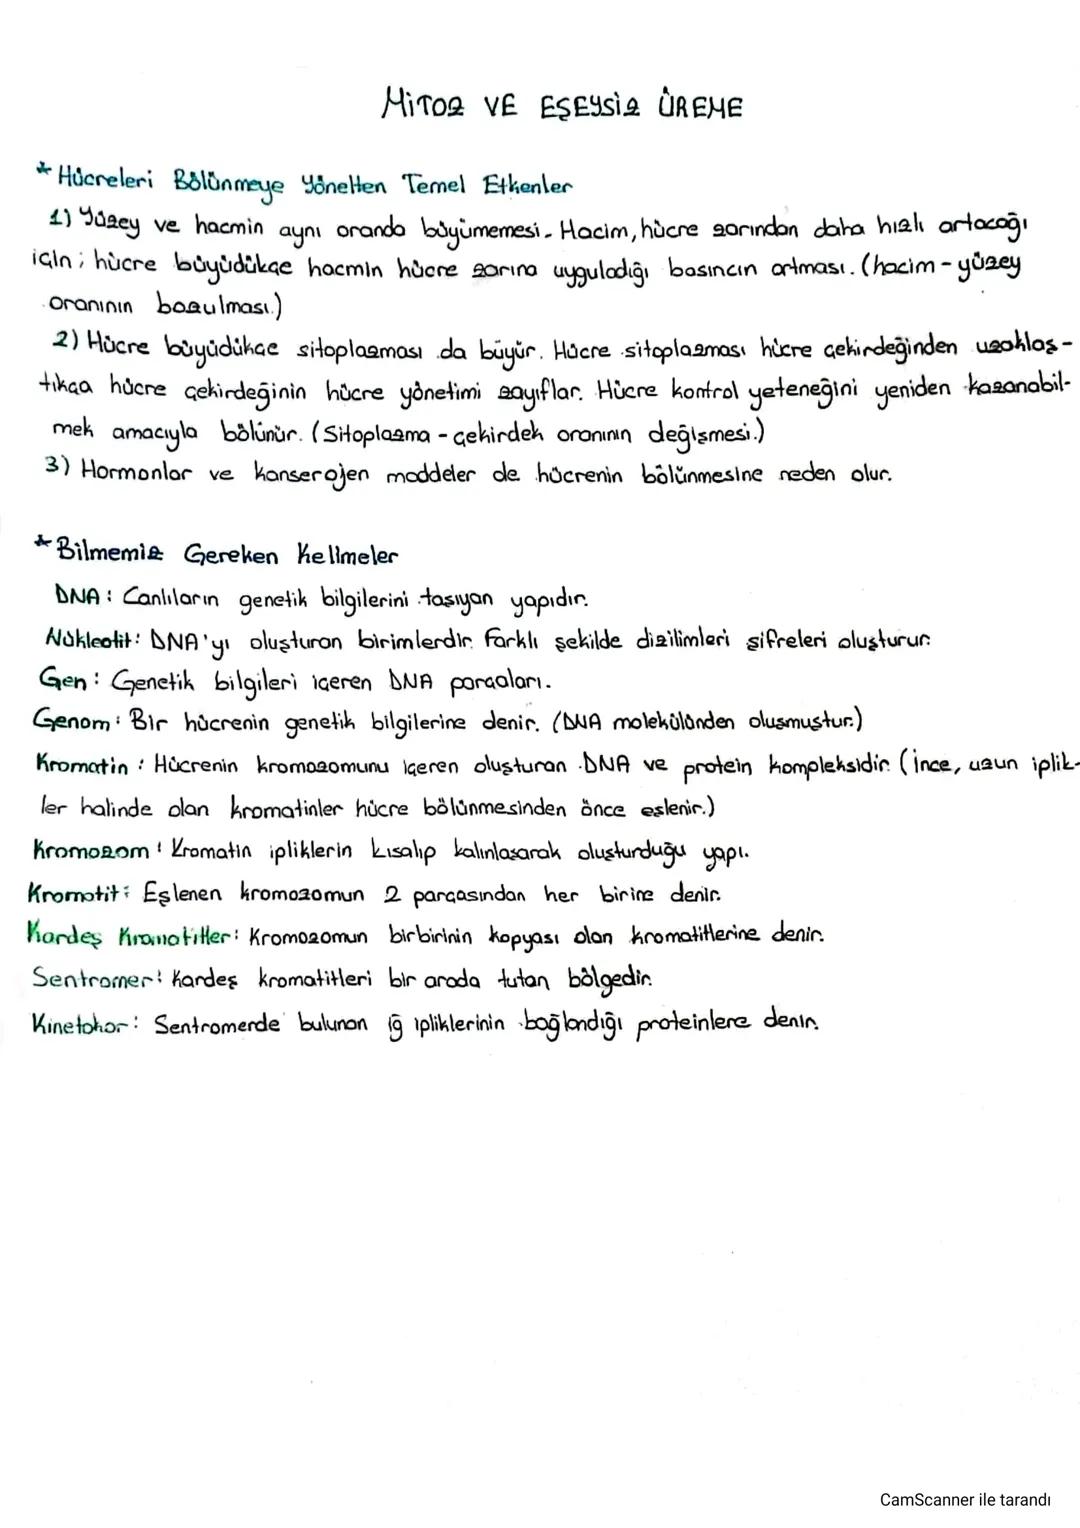 MİTOZ VE EŞEYSİZ ÜREME
* Hücreleri Bölünmeye Yönelten Temel Etkenler
1) Yüzey ve hacmin aynı oranda büyümemesi. Hacim, hücre zarından daha hızlı artacağı
için; hücre büyüdükçe hacmin hücre zarına uyguladığı basıncın artması. (hacim - yüzey
oranının bozulması.)
2) Hücre büyüdükçe sitoplazması da büyür. Hücre sitoplazması hücre çekirdeğinden uzaklaş-
tıkça hücre çekirdeğinin hücre yönetimi zayıflar. Hücre kontrol yeteneğini yeniden kazanabil-
mek amacıyla bölünür. (Sitoplazma - çekirdek oranının değişmesi.)
3) Hormonlar ve kanserojen maddeler de hücrenin bölünmesine neden olur.
* Bilmemiz Gereken Kelimeler
DNA : Canlıların genetik bilgilerini taşıyan yapıdır.
Nükleotit : DNA'yı oluşturan birimlerdir. Farklı şekilde dizilimleri şifreleri oluşturur.
Gen : Genetik bilgileri içeren DNA parçaları.
Genom : Bir hücrenin genetik bilgilerine denir. (DNA molekülünden oluşmuştur.)
Kromatin : Hücrenin kromozomunu içeren oluşturan DNA ve protein kompleksidir. (İnce, uzun iplik-
ler halinde olan kromatinler hücre bölünmesinden önce eşlenir.)
Kromozom : Kromatin ipliklerin kısalıp kalınlaşarak oluşturduğu yapı.
Kromotit : Eşlenen kromozomun 2 parçasından her birine denir.
Kardeş Kromatitler : Kromozomun birbirinin kopyası olan kromatitlerine denir.
Sentromer : Kardeş kromatitleri bir arada tutan bölgedir.
Kinetokor : Sentromerde bulunan iğ ipliklerinin bağlandığı proteinlere denir.
CamScanner ile tarandı